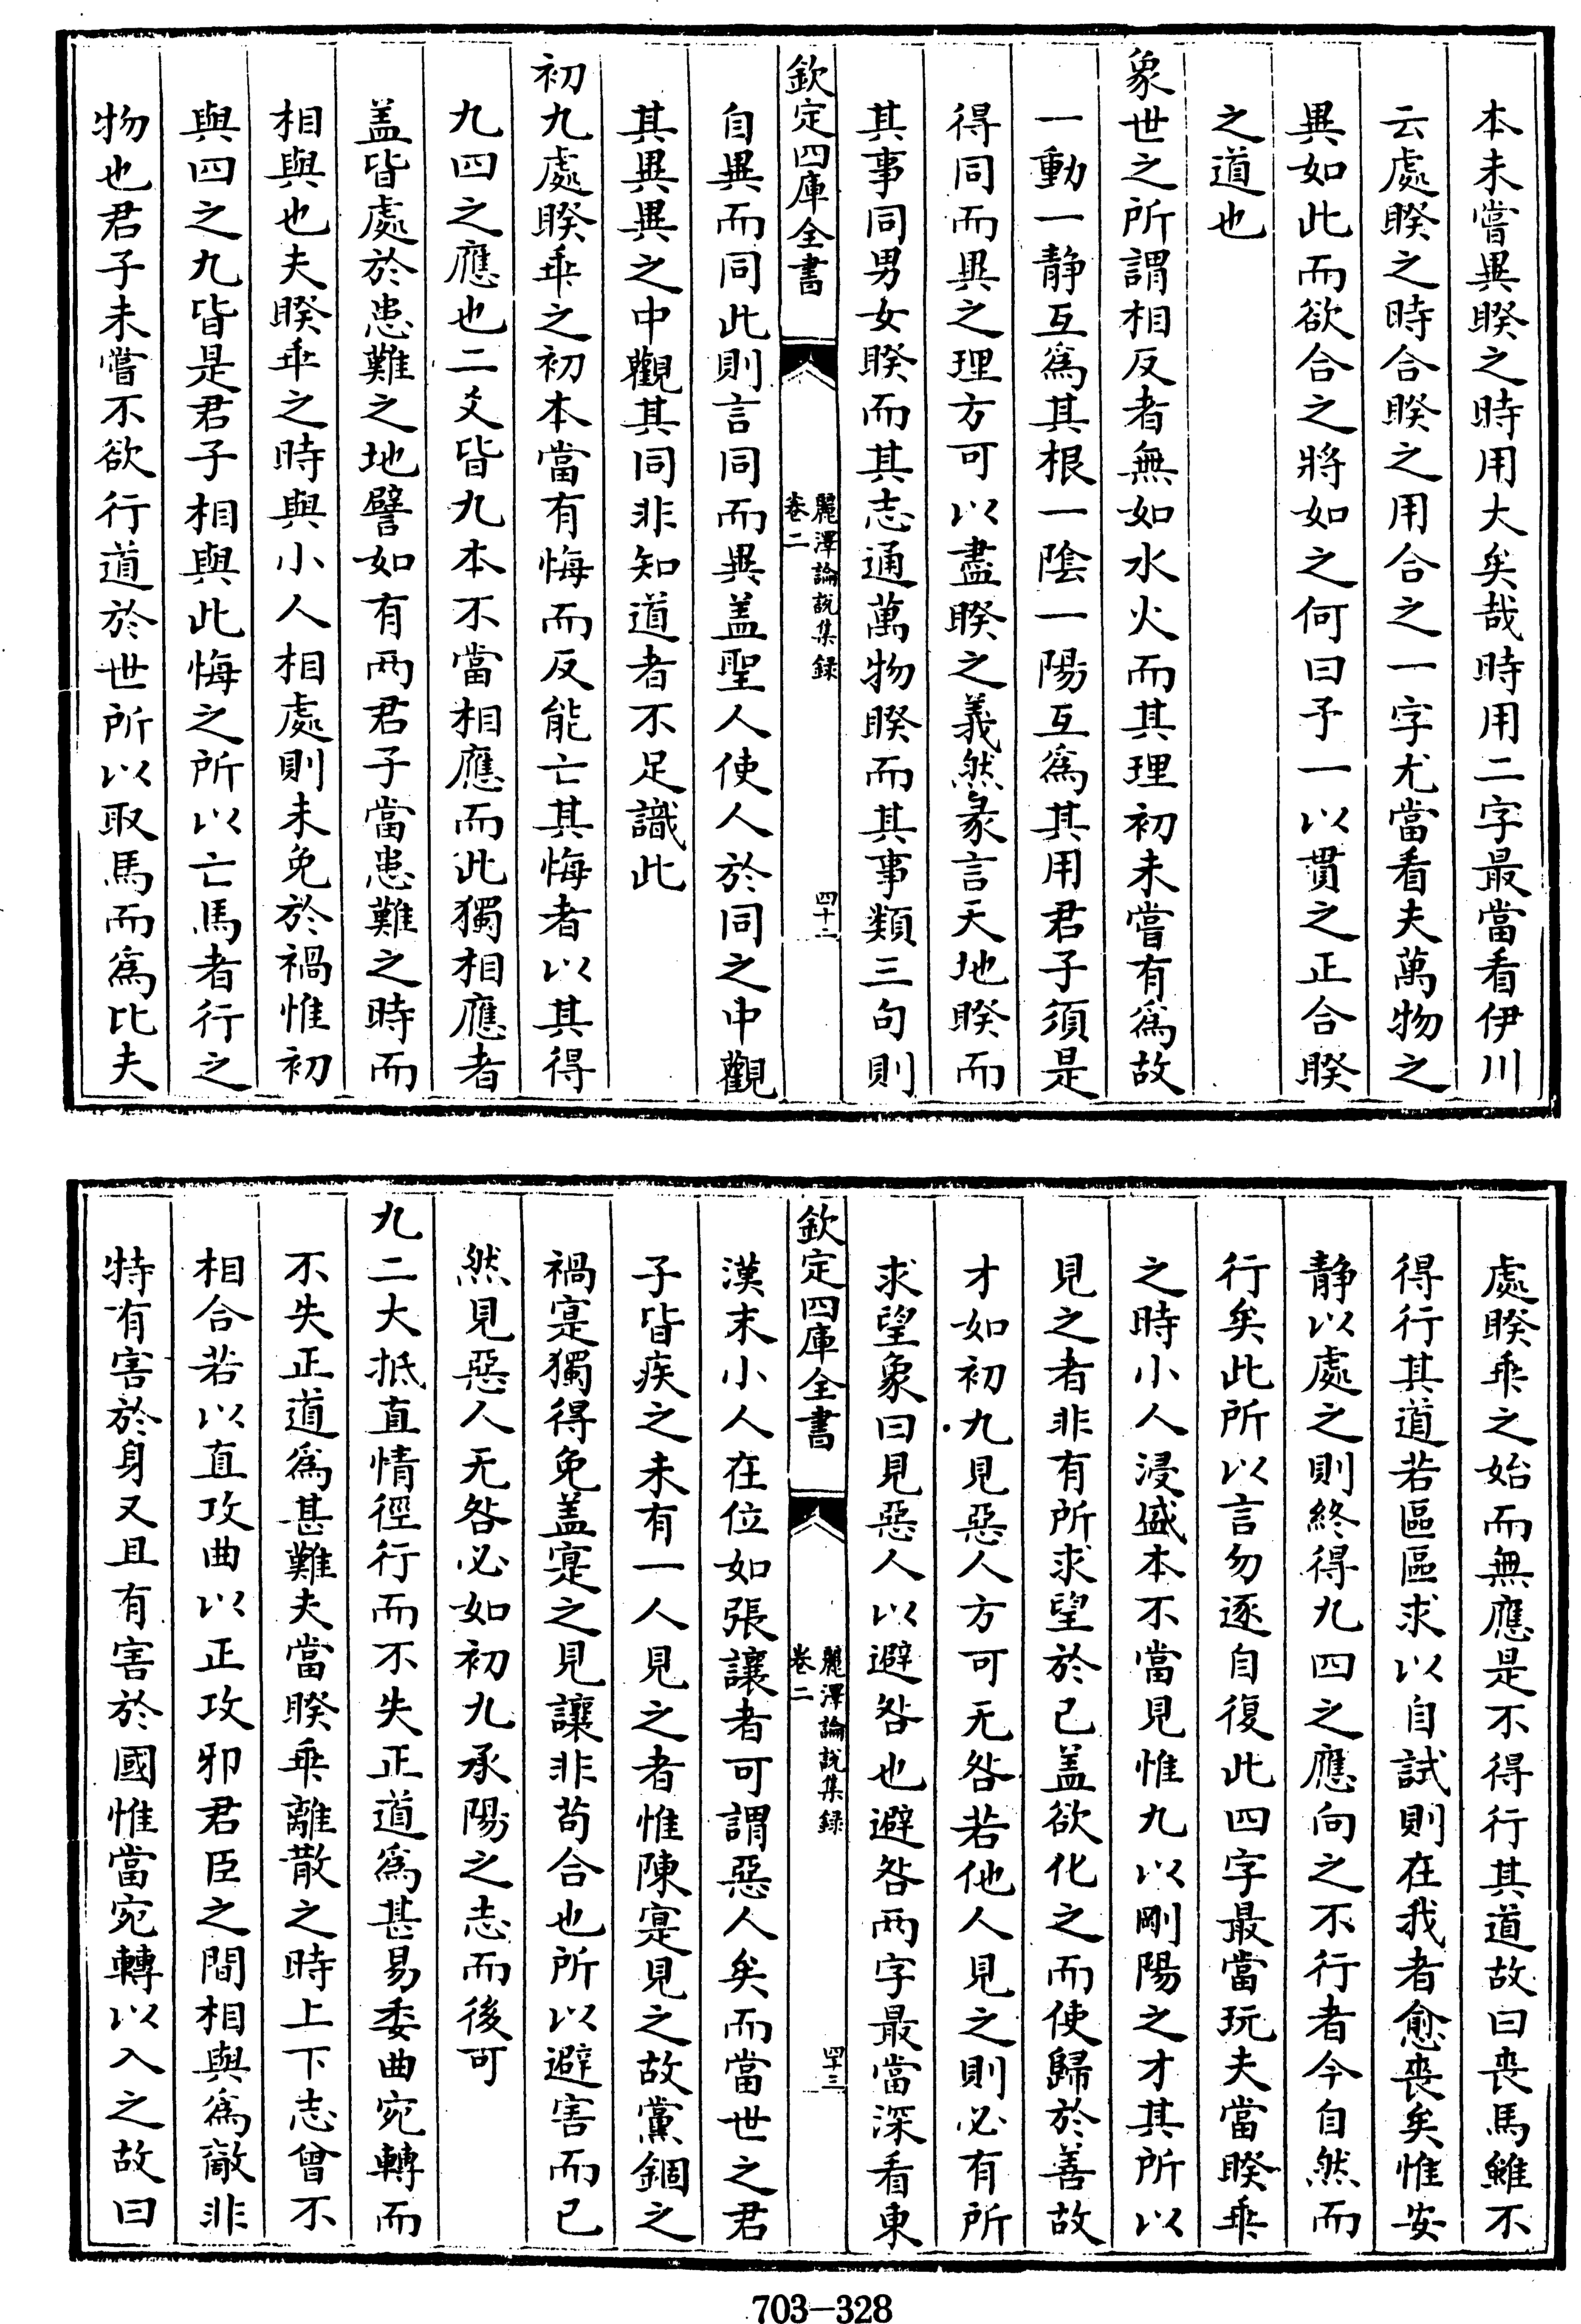 本未嘗異睽之時用大矣哉時用二字最當看伊川
云處睽之時合睽之用合之一字尤當看夫萬物之
異如此而欲合之將如之何曰予一以貫之正合睽
之道也
象世之所謂相反者無如水火而其理初未嘗有為故
一動一静互為其根一陰一陽互為其用君子須是
得同而異之理方可以盡睽之義然彖言天地睽而
其事同男女睽而其志通萬物睽而其事類三句則
欽定四庫全書
麗澤論説集録
卷二
四十二
自異而同此則言同而異盖聖人使人於同之中觀
其異異之中觀其同非知道者不足識此
初九處睽乖之初本當有悔而反能亡其悔者以其得
九四之應也二爻皆九本不當相應而此獨相應者
盖皆處於患難之地譬如有两君子當患難之時而
相與也夫睽乖之時與小人相處則未免於禍惟初
與四之九皆是君子相與此悔之所以亡馬者行之
物也君子未嘗不欲行道於世所以取馬而為比夫
處睽乖之始而無應是不得行其道故曰喪馬雖不
得行其道若區區求以自試則在我者愈喪矣惟安
静以處之則終得九四之應向之不行者今自然而
行矣此所以言勿逐自復此四字最當玩夫當睽乖
之時小人浸盛本不當見惟九以剛陽之才其所以
見之者非有所求望於已盖欲化之而使歸於善故
才如初九見惡人方可无咎若他人見之則必有所
求望象曰見惡人以避咎也避咎两字最當深看東
欽定四庫全書
麗澤論説集録
卷二
四十三
漢末小人在位如張讓者可謂惡人矣而當世之君
子皆疾之未有一人見之者惟陳寔見之故黨錮之
禍寔獨得免盖寔之見讓非苟合也所以避害而已
然見惡人无咎必如初九承陽之志而後可
九二大抵直情徑行而不失正道為甚易委曲宛轉而
不失正道為甚難夫當睽乖離散之時上下志曾不
相合若以直攻曲以正攻邪君臣之間相與為敵非
特有害於身又且有害於國惟當宛轉以入之故曰
703-328